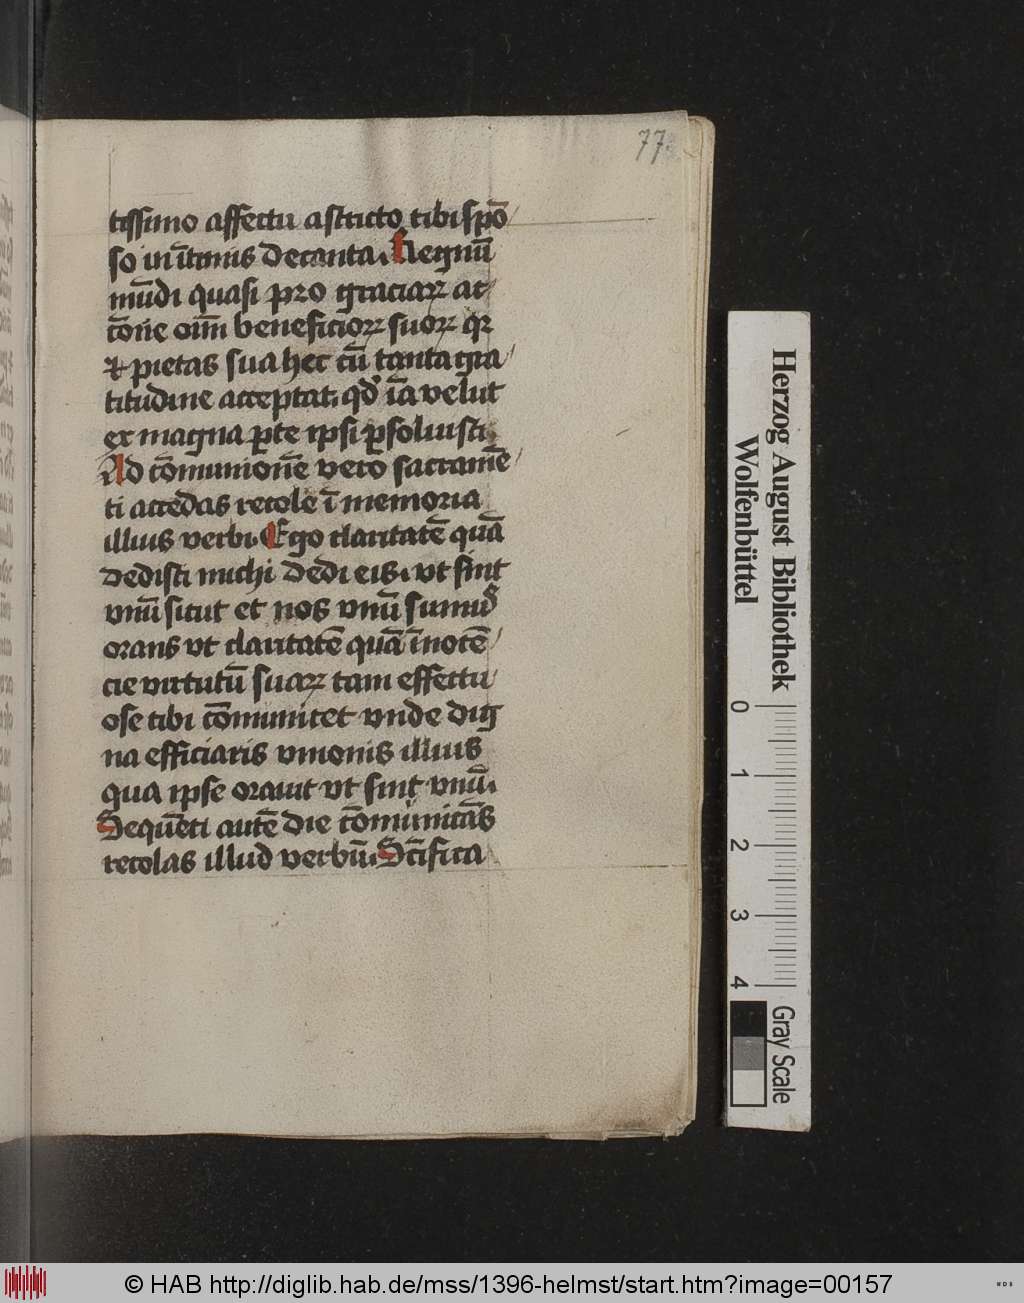 77
tissimo affectu astricto tibi spo᷒/
so in ītimis decanta. Regnū
mūdi quasi pro graciaꝝ ac/
cōne oīm beneficioꝝ suoꝝ qꝛ
⁊ pietas sua hec cū tanta gra/
titudine acceptat. qd̓ iā velut
ex magna ꝑte ipsi ꝑsoluisti.
Ad cōmunionē vero sacramē/
ti accedas recole ī memoria
illius verbi. Ego claritatē quā
dedisti michi dedi eis. vt sint
vnū sicut et nos vnū sumus
orans vt claritatē quā īnocē/
cie virtutū suaꝝ tam effectu/
ose tibi cōmunicet vnde dig
na efficiaris vnionis illius
qua ipse orauit vt sint vnū.
Sequēti autē die cōmunicās
recolas illud verbū. Scīfica
Herzog August Bibliothek
Wolfenbüttel
0 1 2 3 4
Gray Scale
© HAB http://diglib.hab.de/mss/1396-helmst/start.htm?image=00157
WDB